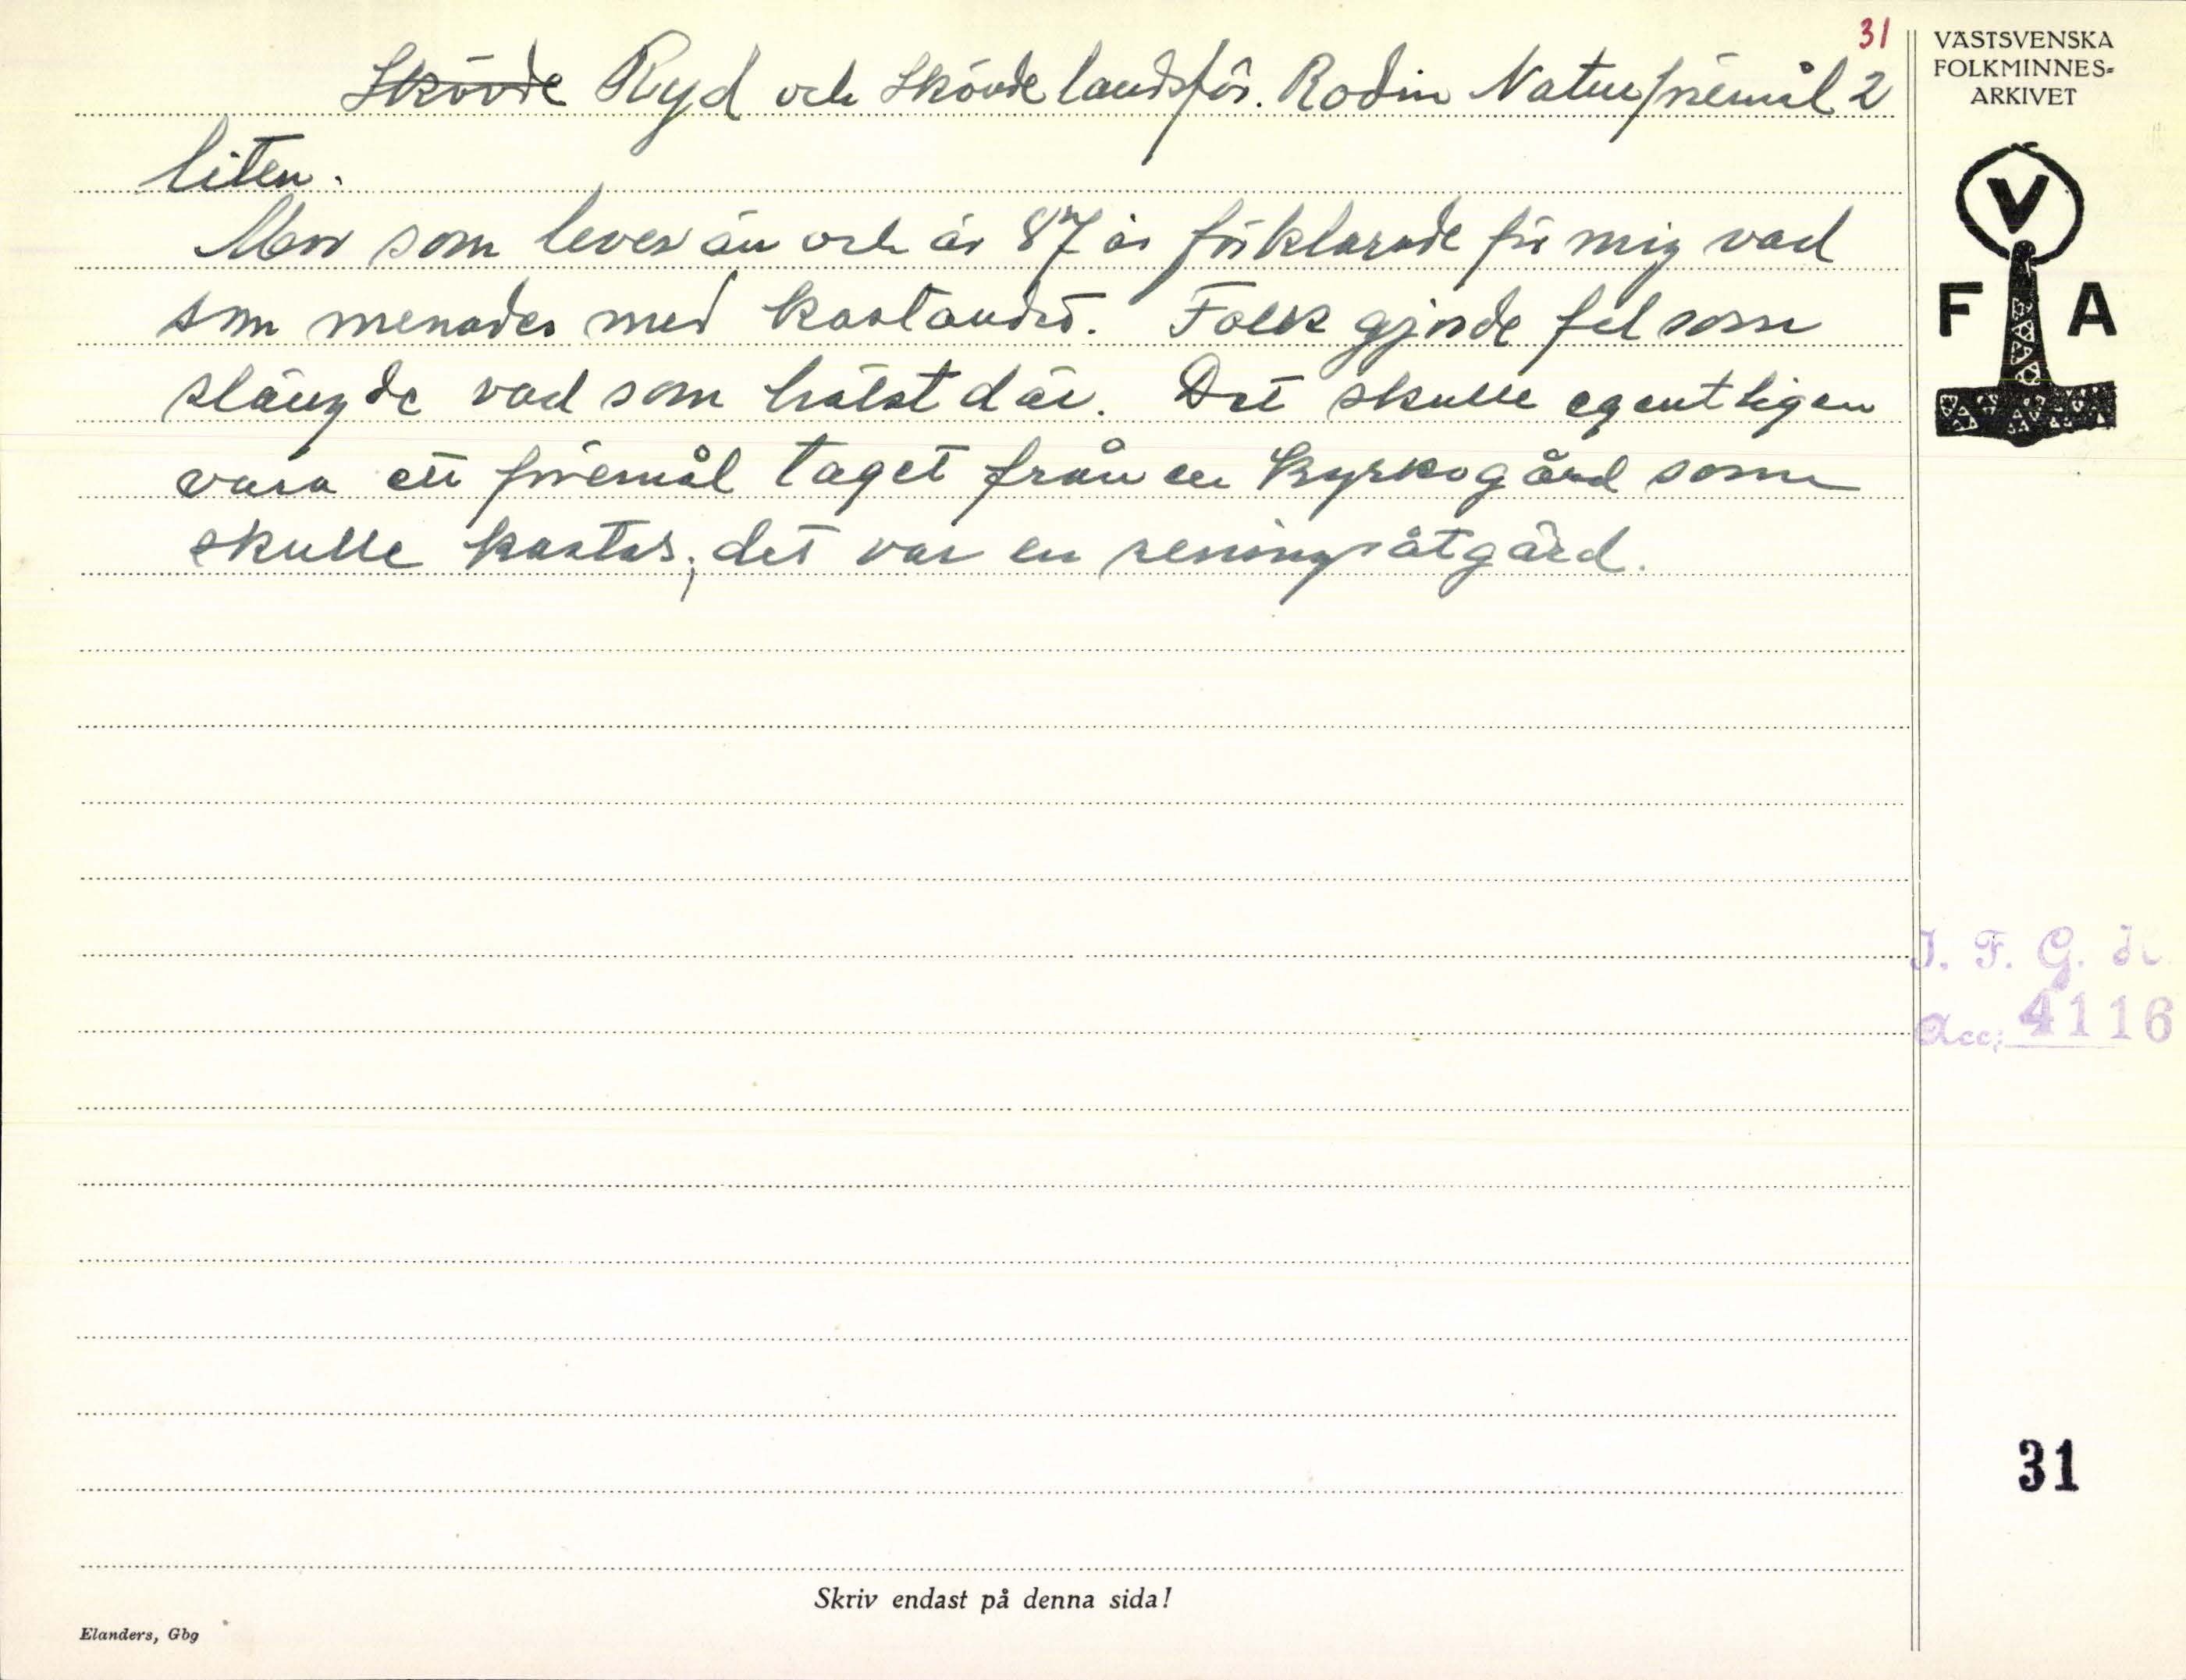 31
Skövde Ryd och Skövde landsför. Rodin Naturföremål 2
liten.
Mor som lever än och är 87 år förklarade för mig vad
som menades med kastandet. Folk gjorde fel som
slängde vad som hälst där. Det skulle egentligen
vara ett föremål taget från en kyrkogård som
skulle kastas; det var en reningsåtgärd.
VÄSTSVENSKA
FOLKMINNES-
ARKIVET
V
F A
I. F. G. H.
Acc; 4116
31
Skriv endast på denna sida!
Elanders, Gbg